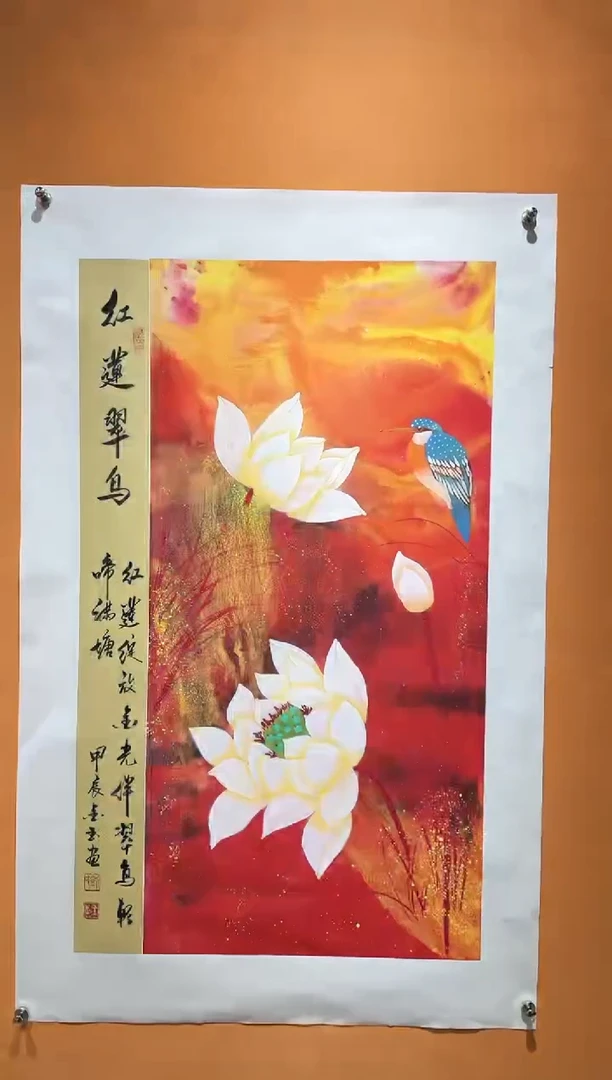 红莲翠鸟
红莲绽放金光伴翠鸟轻
啼满塘
甲辰金玉画